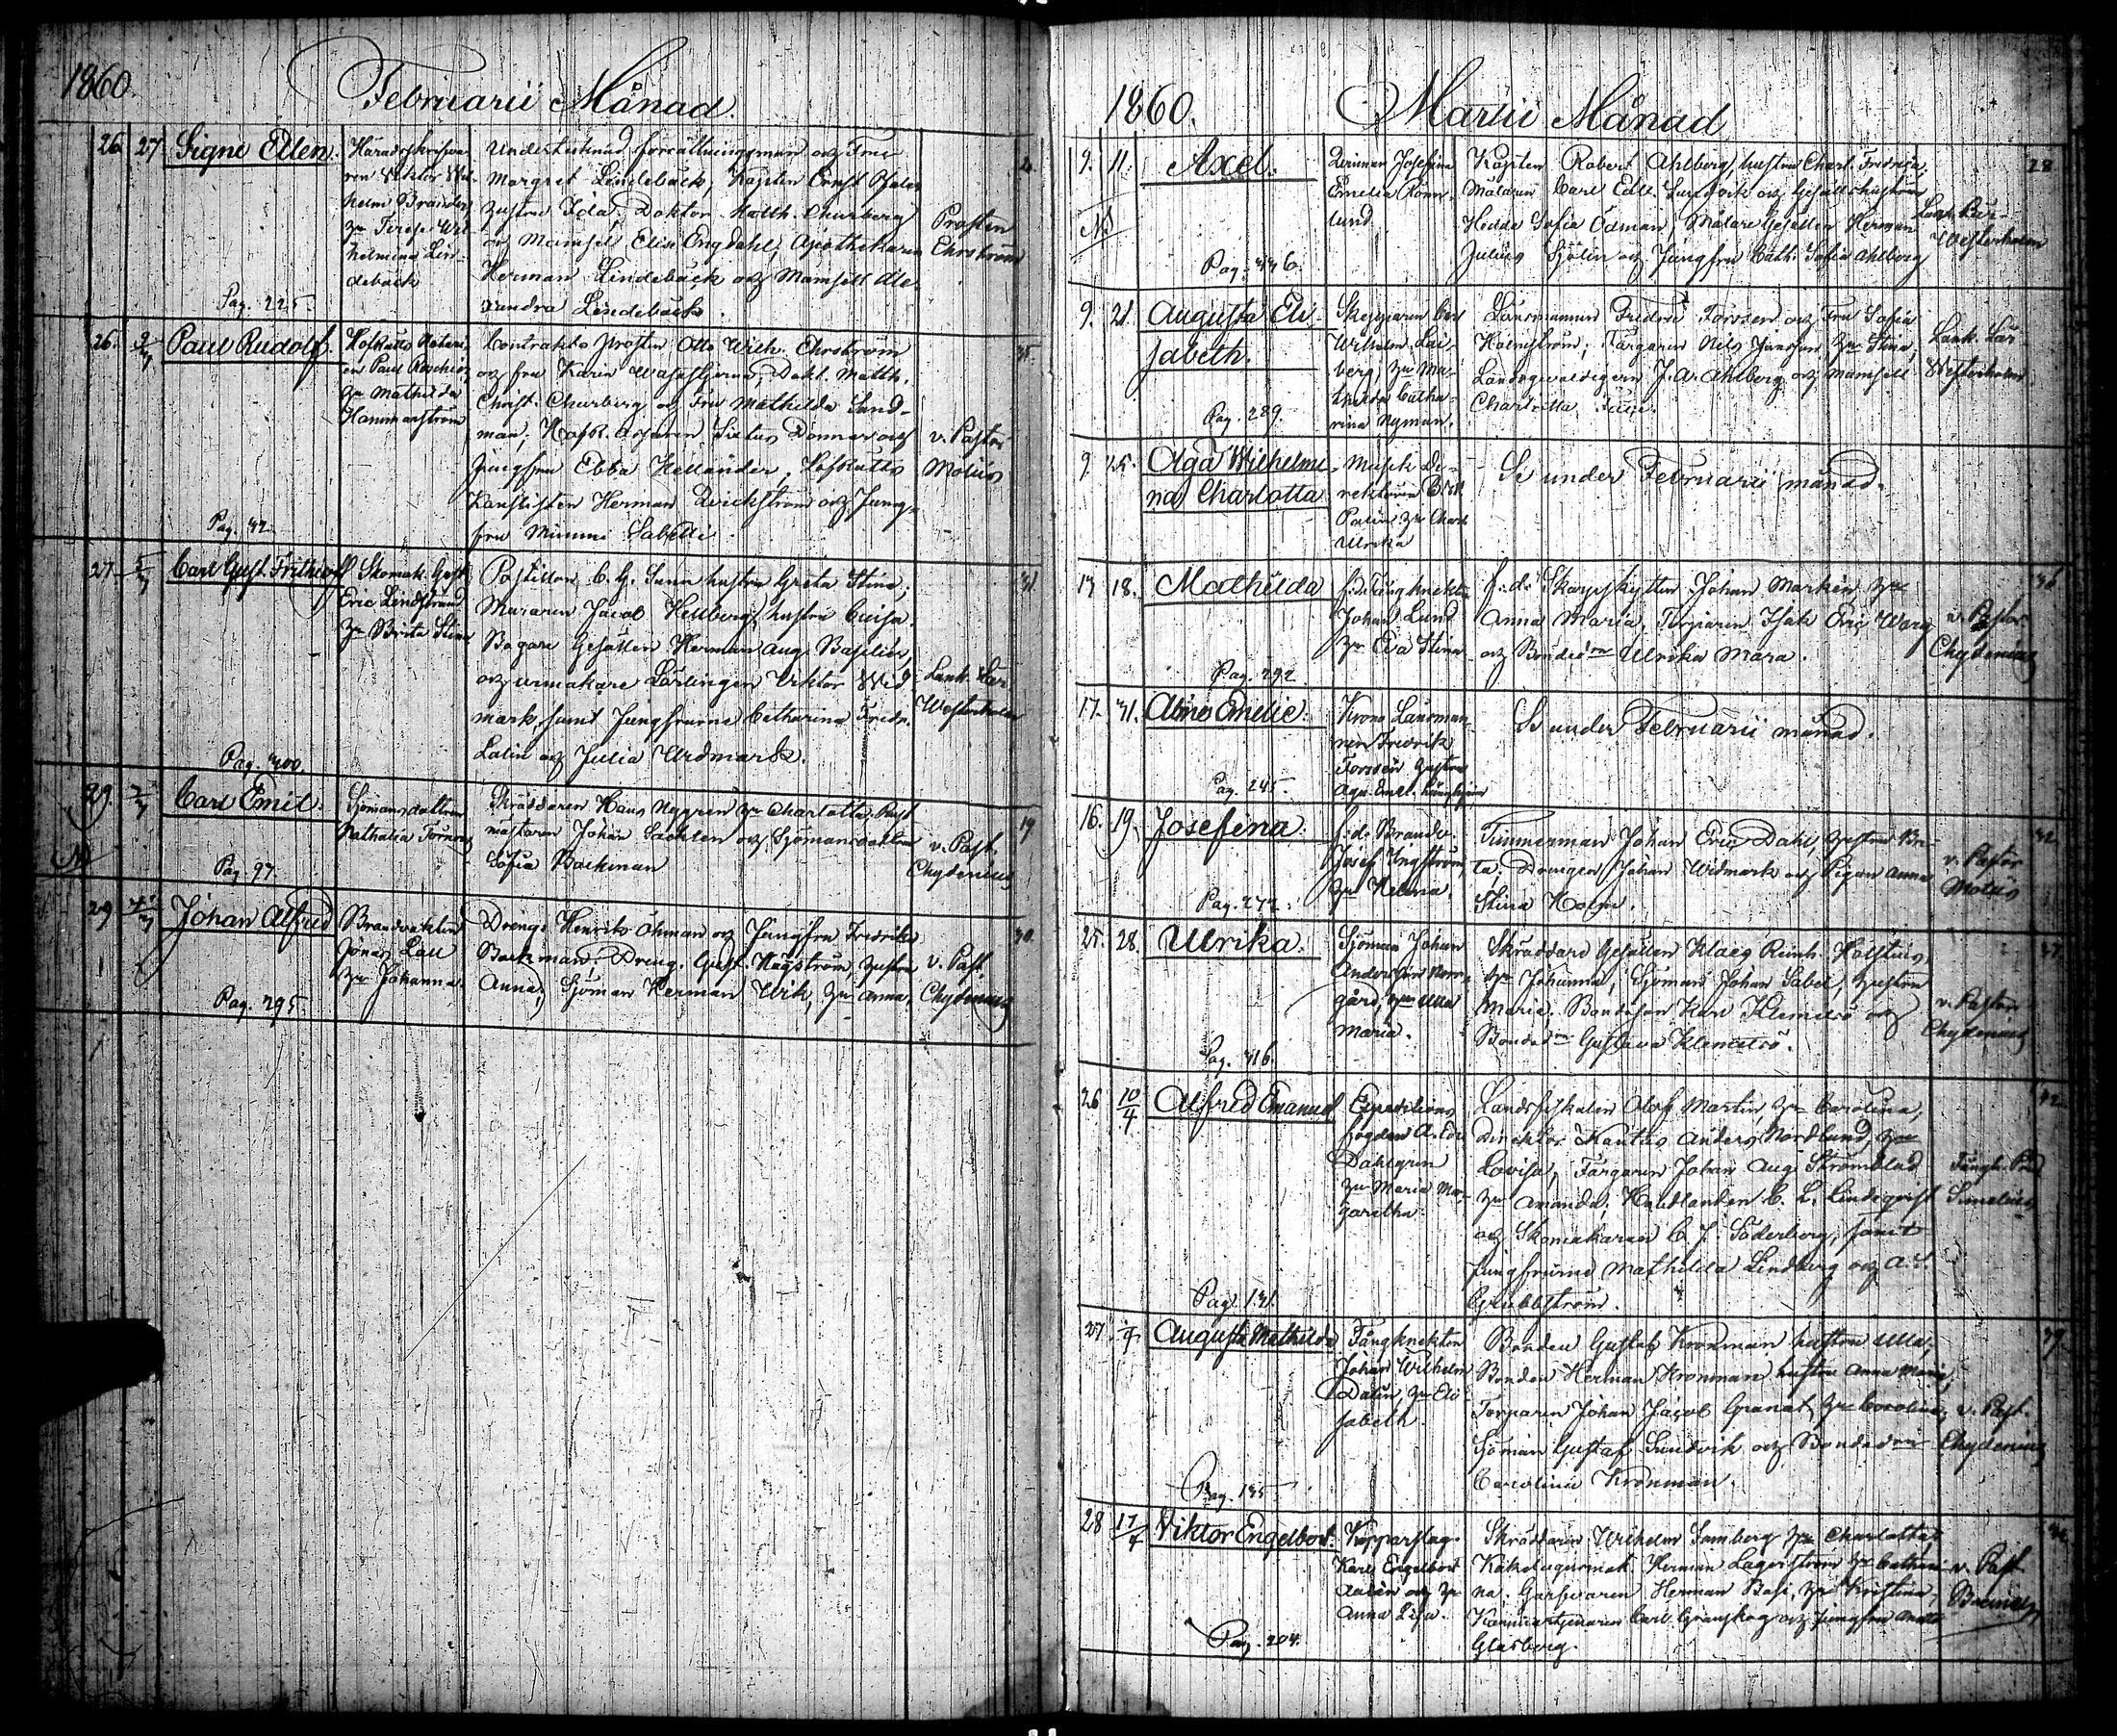 1860.
Februarii Månad.
26 27 Signe Ellen.
Häradsskrifva-
ren Viktor Wil-
helm Brander,
Hu Terese Wil-
helmina Lin-
debäck
Pag. 225.
Undertecknad förrättningsman och Fru
Margret Lindebäck, Kapten Ernst
hustru Ida, Doktor Matth. Churberg
och Mamsell Elise Engdahl, Apothekaren
Herman Lindebäck och Mamsell Ale-
xandra Lindebäck.
Prosten
Ehrström
26. Paul Rudolf.
Hofrätts Notari-
en Paul Roschier,
Hu Mathilda
Hammarström
Pag. 42.
Contrakts Prosten Otto Wilh. Ehrström
och fru Karin Wasastjerna, Dokt. Matth.
Christ. Churberg och Fru Mathilda Sand-
man, Hofr. Sixtus Donner och
Jungfru Ebba Hellander, Hofrätts
Kanslisten Herman Qvickström och Jung-
fru Mimmi Sabelli.
v. Pastor
Molüs
35.
27 5/3 Carl Gust. Frithiof
Skomak. Ges.
Eric Lindstrand
Hu Brita Stina
Pag. 400.
Postillon C. G. Sann hustru Greta Stina,
Muraren Jacob Hellberg, hustru Lovisa,
Bagare Gesällen Herman Aug. Basilier,
och urmakare Lärlingen Viktor Wid-
mark, samt Jungfrurna Catharina Fredr.
Lalin och Julia Widmark.
Lank. Lär.
Westerholm
29. Carl Emil.
Sjömansdottren
Nathalia Törnroos
Pag. 97.
Skräddaren Hans Nygren Hu Charlotta, Rust
mästaren Johan och Sjömansdottren
Sofia Backman
v. Past.
Chydenius
19.
29 Johan Alfred
Brandvakten
Jonas Lall
Hu Johanna.
Pag. 295.
Dreng. Henrik Öhman och Jungfru Fredrika
Backman, Dreng. Gust. Hägström, hustru
Anna, Sjöman Herman Wik, Hu Anna.
v. Past.
Chydenius
30.
1860.
Martii Månad
9. 11. Axel.
Qvinnan Josefina
Emelia Rönn-
lund.
Pag. 446.
Kapten Robert Ahlberg, hustru Charl. Fredrica,
Målaren Carl Edv. Sundvik och Gesällshustrun
Hedda Sofia Ödman, Målare Gesällen Herman
Julius Sjölin och Jungfru Cath. Sofia Ahlberg
Lank. Lär.
Westerholm
28
9. 21. Augusta Eli-
sabeth.
Skepparen Carl
Wilhelm Lai-
berg, Hu Ma-
thilda Catha-
rina Nyman.
Pag. 289.
Länsmannen Fredric Forssen och Fru Sofia
Holmström, Färgaren Nils Jansson Hu Stina,
Landsgevaldigern J. A. Ahlberg och Mamsell
Charlotta
Lank. Lär
Westerholm
9. 25. Olga Wilhelmi-
na Charlotta
Musik Di-
rektören
Hu Charl.
Ulrika
Se under Februarii månad.
13 18. Mathilda
f.d. Fångknekten
Johan Lund
Hu Eva Stina
Pag. 292.
f.d. Skarpskytten Johan Markén, Hu
Anna Maria, Torparen Isak Eric Warg
och Bondedn Ulrika Mara.
v. Pastor
Chydenius
36
17. 31. Emelie.
Krono Länsman-
nen Fredrik
Forssén hustru
Pag. 245.
Se under Februarii månad.
16. 19. Josefina.
f.d. Brandv.
Josef Engström,
Hu Helena.
Pag. 272.
Timmerman Johan Eric Dahl, hustru Bri-
ta, Drengen Johan Widmark och Pigan Anna
Stina Holm.
v. Pastor
Molüs
25. 28. Ulrika.
Sjöman Johan
Andersson Norr-
gård, Hu Ulla
Maria.
Pag. 416.
Skräddare Gesällen Klaes Reinh. Holstius,
Hu Johanna, Sjöman Johan Sabel, hustru
Maria. Bondeson Karl Klemets och
Bondedn Gustava Klemets.
v. Pastor
Chydenius
26 10/4 Alfred Emanuel
Expeditions
fogden A. Edv
Dahlgren
Hu Maria Mar-
garetha.
Pag. 131.
Landsfiskalen Olof Martin, Hu Carolina,
Direktör Anders Nordlund, Hu
Lovisa, Färgaren Johan Aug. Strömblad
Hu Amanda, Handlanden C. L. Lindeqvist
och Skomakaren C. J. Söderberg, samt
Jungfrurna Mathilda Lindberg och A. S.
Grubbström.
Fängh. Pred
Simelius
27 Augusta Mathilda
Fångknekten
Johan Wilhelm
Dalin, Hu Eli-
sabeth.
Pag. 185.
Bonden Gustaf Kronman hustru Ulla,
Bonden Herman Kronman hustru Anna Maria,
Torparen Johan Jacob Granat, Hu Carolina,
Sjöman Gustaf Sundvik och Bondedn
Carolina Kronman.
v. Past.
Chydenius
39.
28 17/4 Viktor Engelbert.
Kopparslag.
Karl Engelbert
och Hu
Anna Lisa.
Pag. 204.
Skräddaren Wilhelm Samberg Hu Charlotta,
Kakelugnsmak. Herman Lagerström Hu Cathari-
na. Garfvaren Herman Hu Kristina,
Carl Granskog och Jungfru
Glasberg.
v. Past